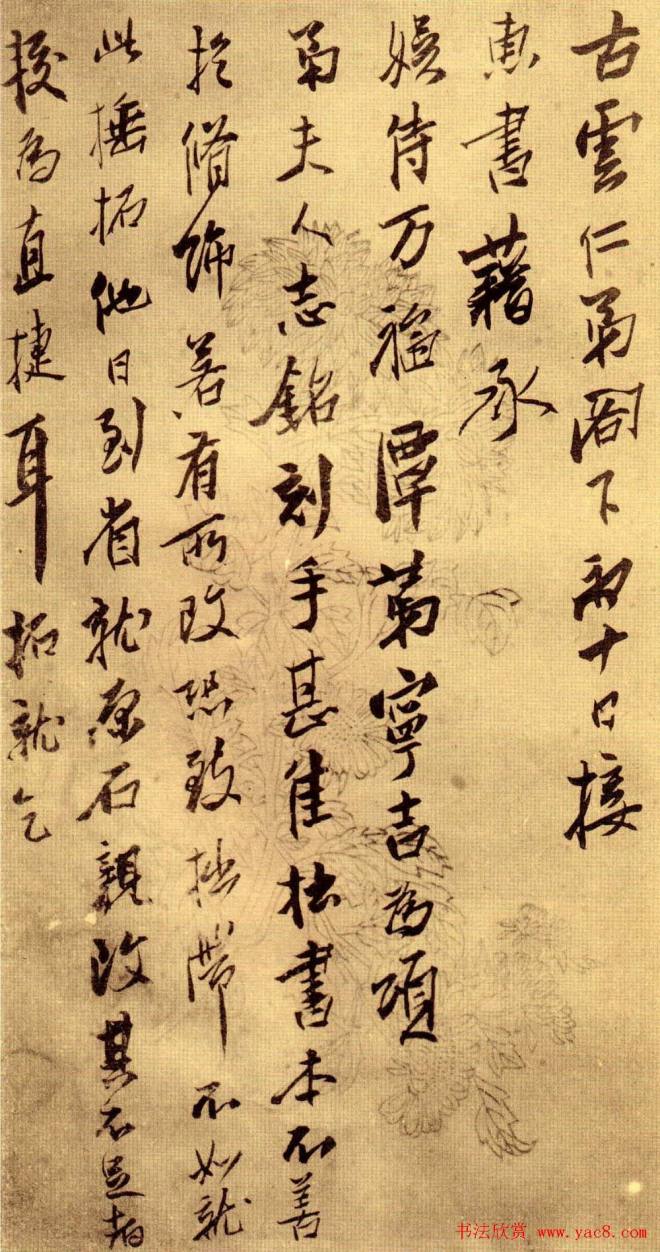 古雲仁弟閣下初十日接
惠書藉承
娛侍万福潭苐寧吉為頌
弟夫人志銘刻手甚佳拙書本不善
於脩飾若有所改恐致拙滯不如就
此捶拓他日到省就原石親改其不足者
較為直捷耳拓就乞
书法欣赏 www.yac8.com